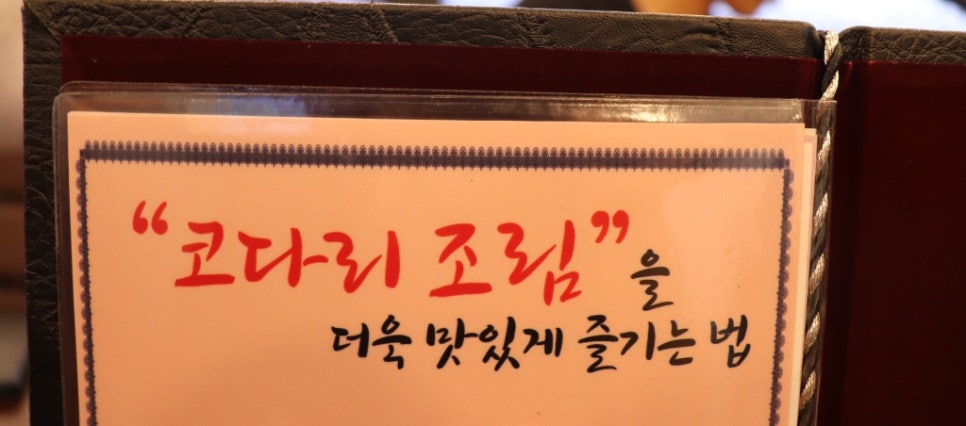 “코다리 조림”을
더욱 맛있게 즐기는 법